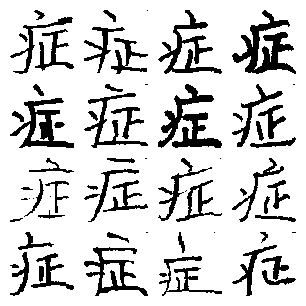 症症症症
症症症症
症症症症
症症症症